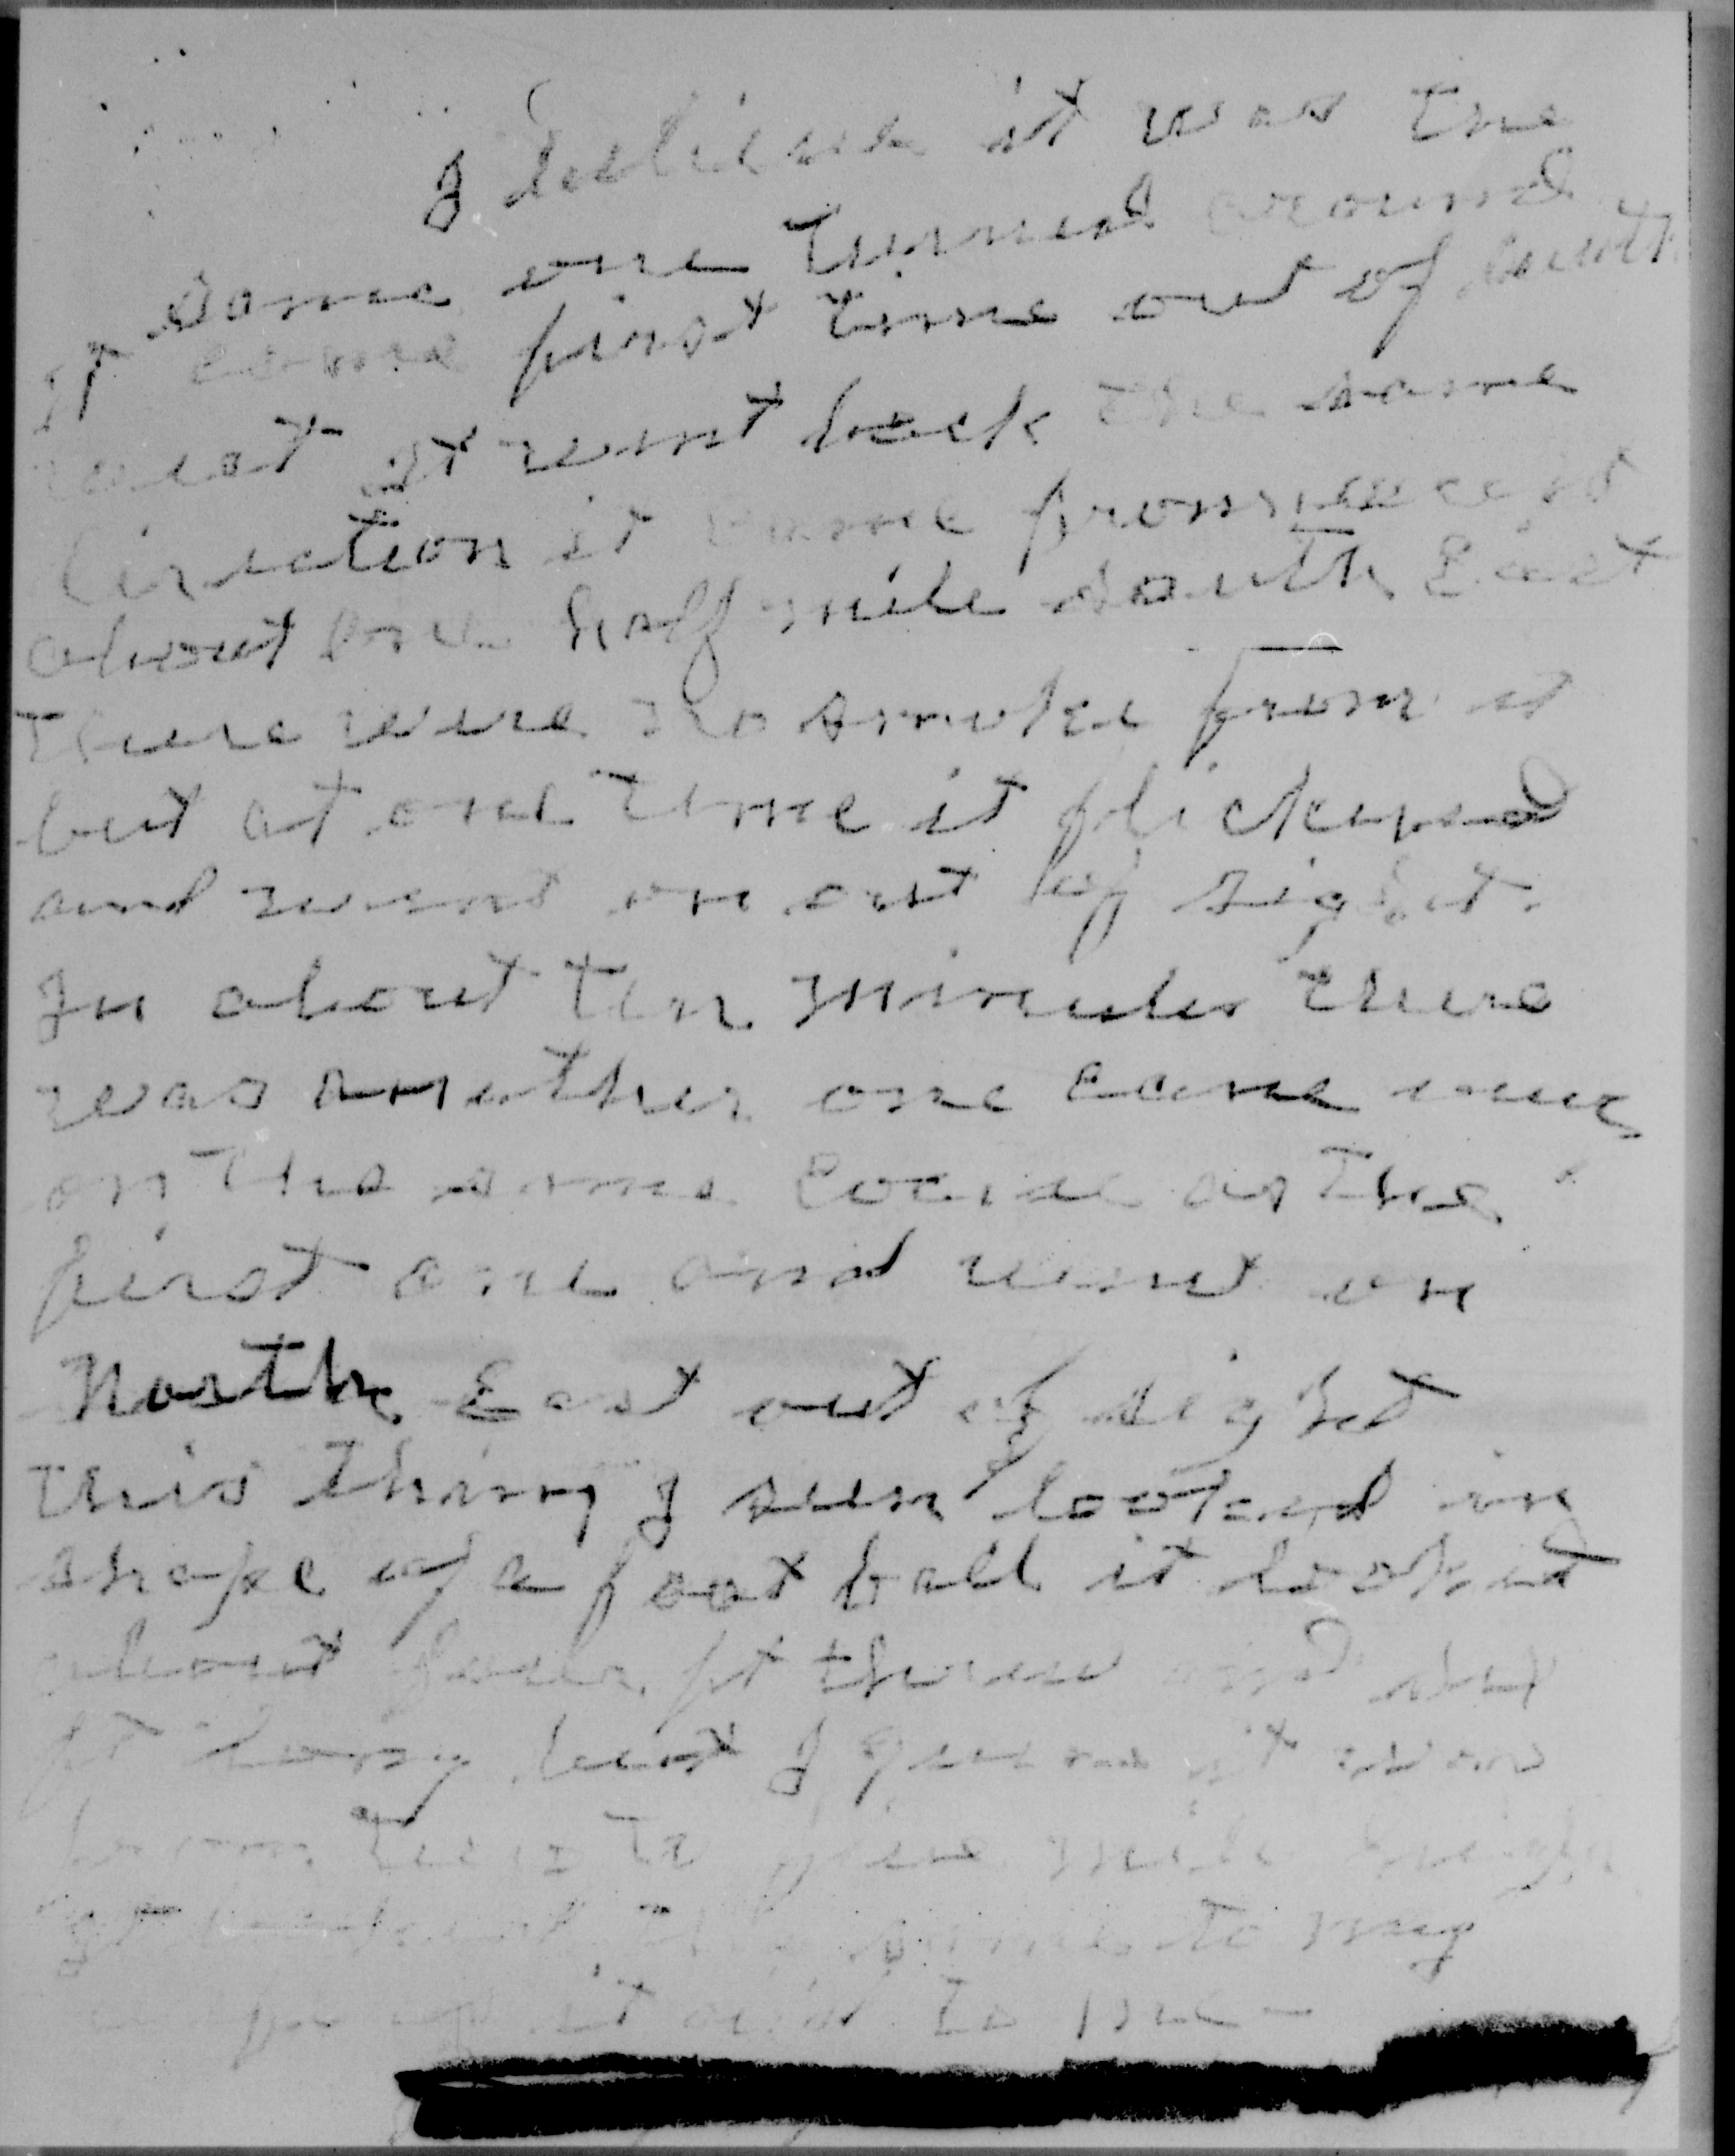 I believe it was the
same one turned around
It came first time out of south
west It went back the same
direction it came from
about one half mile south East
there were no smoke from it
but at one time it flickered
and went on out of sight.
In about ten minutes there
was another one came over
on the same as the
first one and went on
North East out of sight
this thing I seen looked in
shape of a foot ball it looked
about ft three and
ft long but I
to five mile
the same to my
it to me -